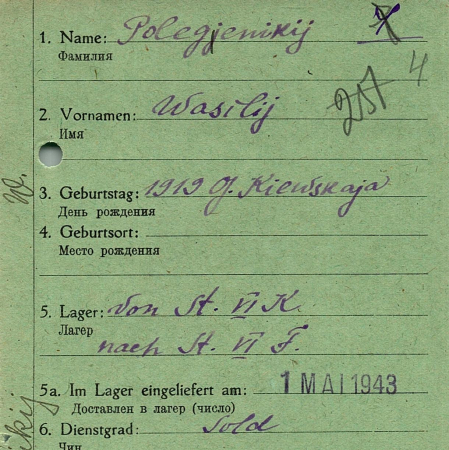 1. Name: Polegjenikij
Фамилия
257 4
2. Vornamen: Wasilij
Имя
W.
3. Geburtstag: 1919 G. Kiewskaja
День рождения
4. Geburtsort:
Место рождения
5. Lager: von St. VI K.
Лагер
nach St. VI F.
5a. Im Lager eingeliefert am: 1 MAI 1943
Доставлен в лагер (число)
6. Dienstgrad: Sold
Чин